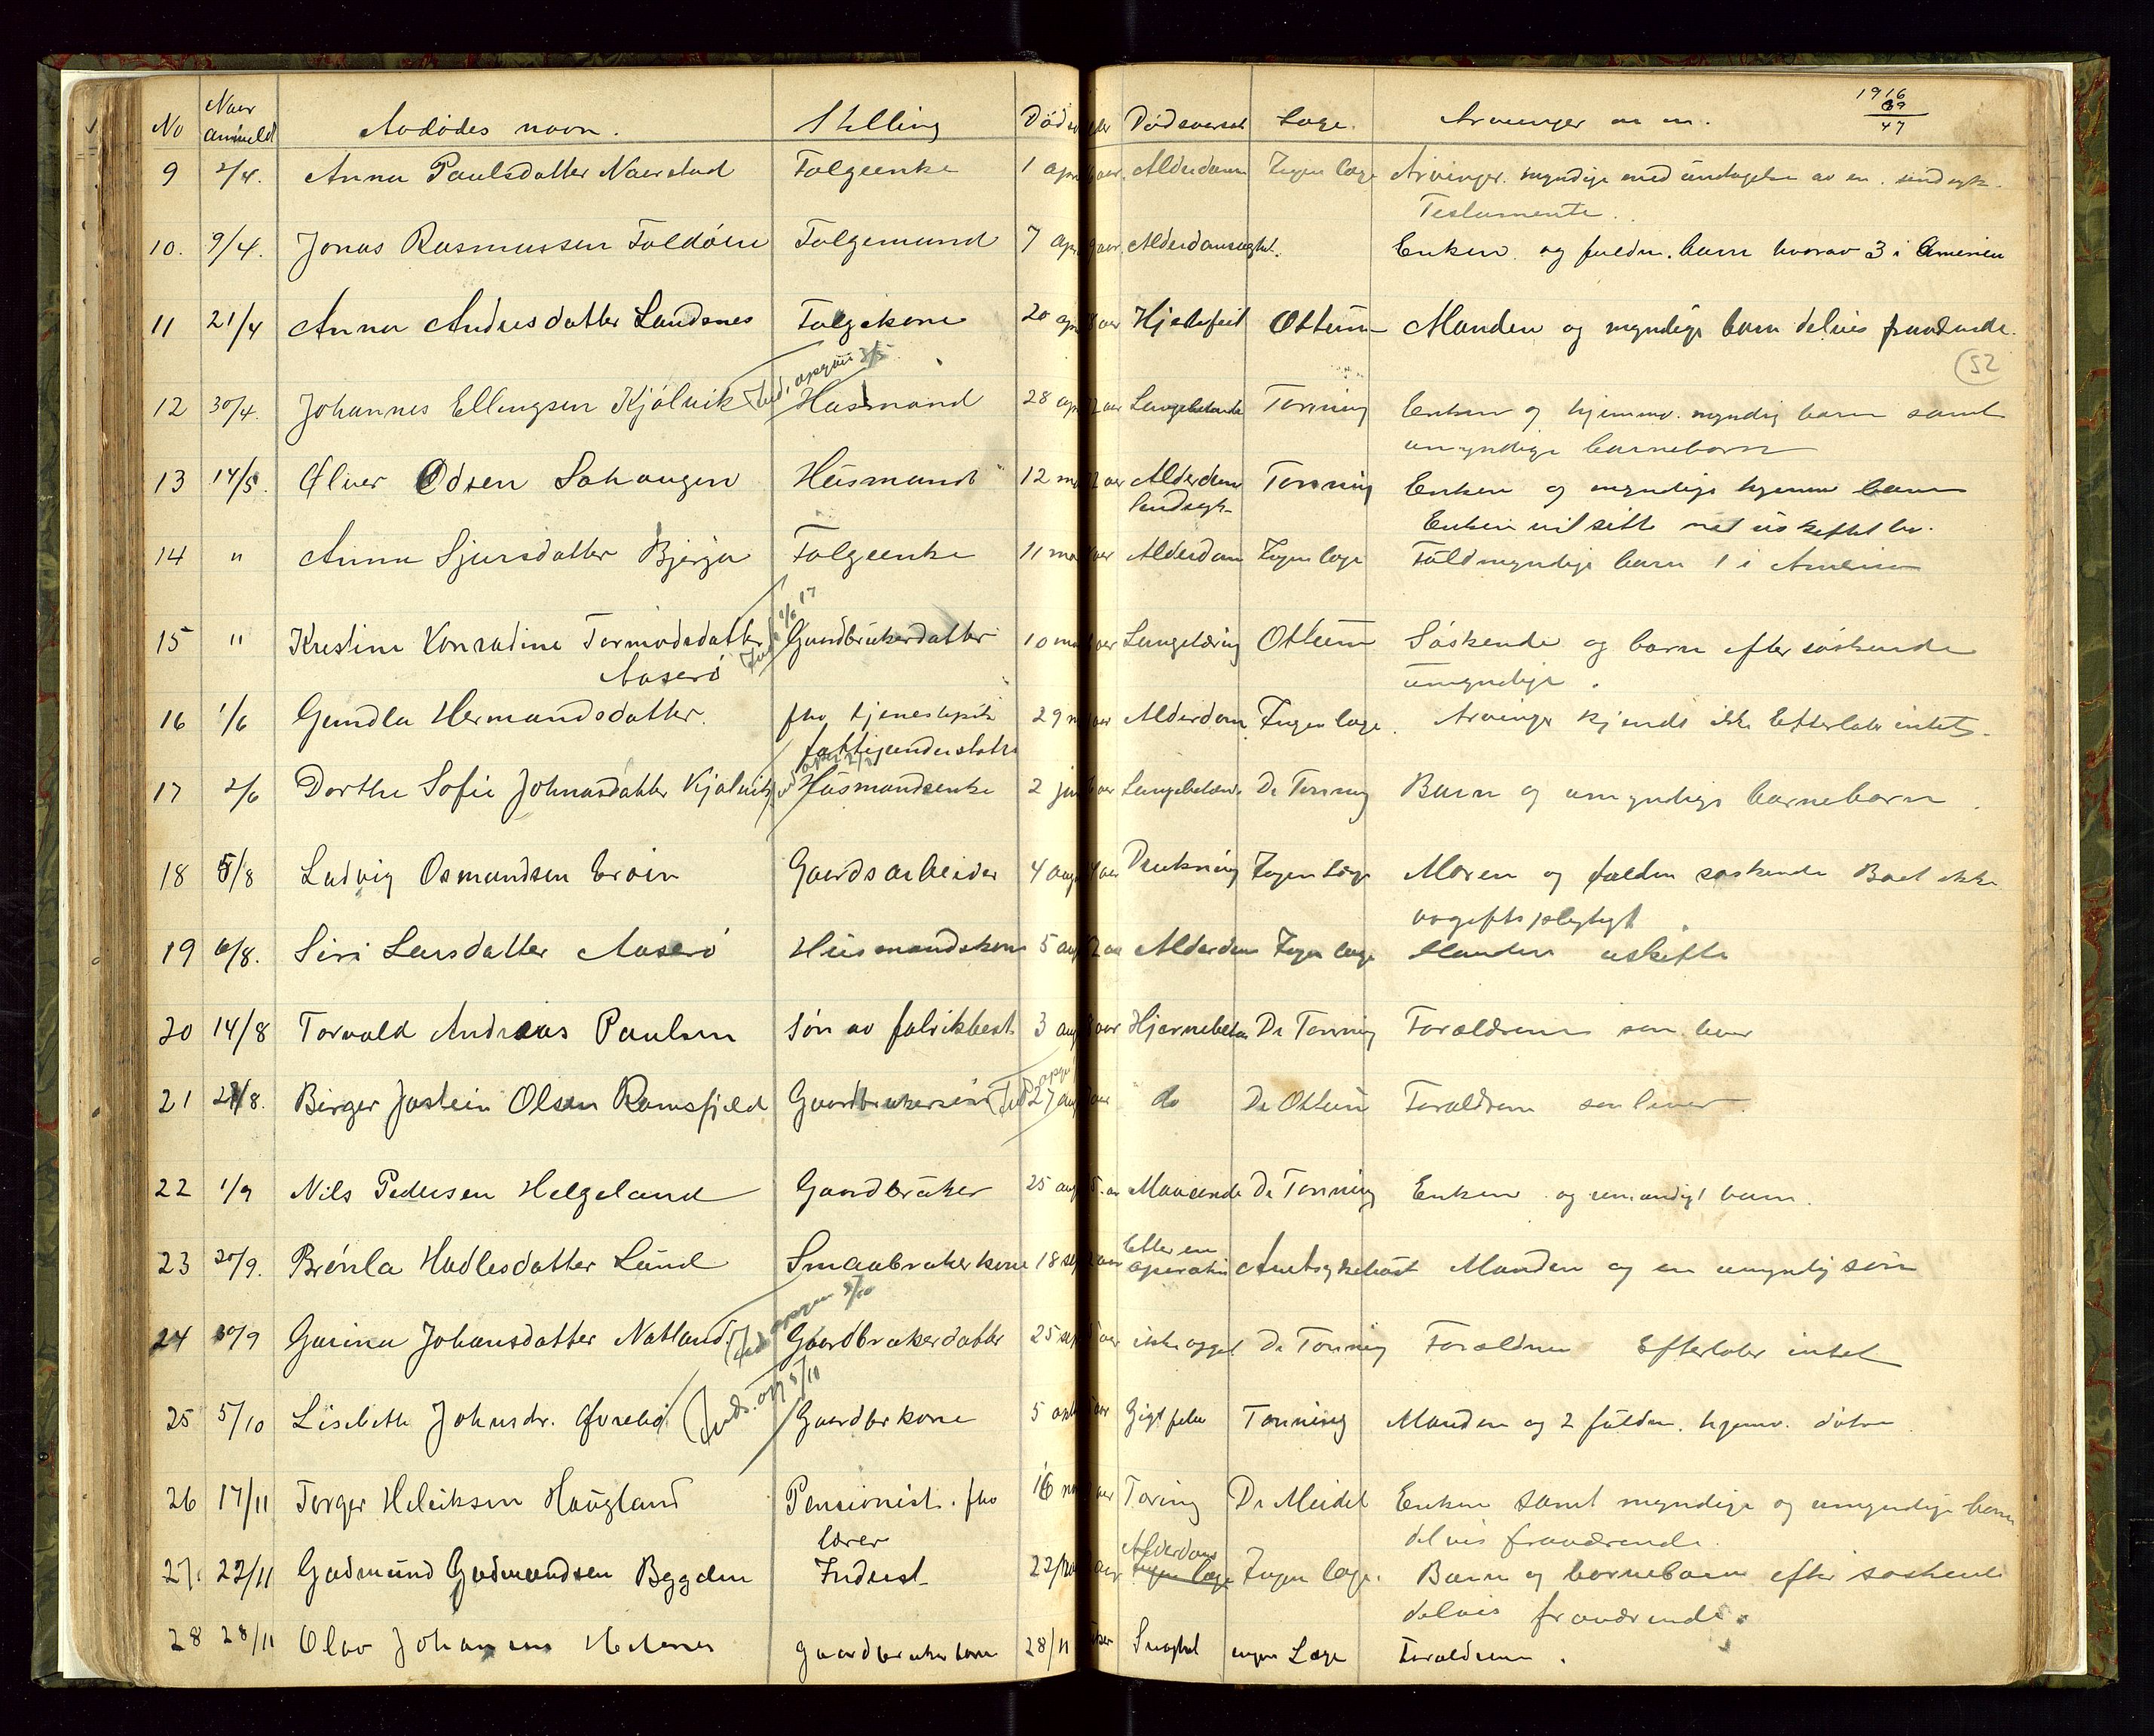 No Naar anmeldt Avdødes navn. Stilling Døds Dødsaarsak Læge. Arvinger m m. 1916
47
52
9 2/4. Anna Paulsdatter Naerstad Følgeenke 1 apr aar. Alderdom Ingen læge Arvinger myndige med undtagelse av en sindsyk.
Testamente.
10. 9/4. Jonas Rasmussen Foldøen Følgemand 7 apr aar. Alderdomssvaghet. Enken og fuldm. barn hvorav 3 i Amerika
11 21/4 Anna Andersdatter Landsnes Folgekone 20 apr aar Hjertefeil Ottum Manden og myndige barn delvis fraværende.
12 30/4. Johannes Ellingsen Kjølvik Husmand 28 apr aar Lungebetændelse Tonning Enken og hjemmv. myndig barn samt
umyndige barnebarn
13 14/5. Oliver Odsen Sohaugen Husmand 12 mai aar Alderdom Tonning Enken og myndige hjemmv barn
Enken vil sitte med uskiftet bo.
14 " Anna Sjursdatter Bjerga Følgeenke 11 mai aar Alderdom Ingen læge Fuldmyndige barn 1 i Amerika
15 " Kristine Konradine Tormodsdatter Gaardbrukerdatter 10 mai aar Lungetæring Ottum Søskende og barn efter søskende
Aaserø umyndige.
16 1/6 Gundla Hermandsdatter. fhv tjenestepike 29 aar Alderdom Ingen læge. Arvinger kjendt ikke Efterlater intet.
fattigunderstøttet
17 2/6 Dorthe Sofie Johnasdatter Kjølvik Husmandsenke 2 juni aar Lungebetænd Dr Tonning Barn og umyndige barnebarn.
18 5/8 Ludvig Osmundsen Gaardsarbeider 4 aug aar Drukning Ingen læge Moren og fuldm søskende Boet ikke
avgiftspligtigt
19 6/8. Siri Larsdatter Aaserø Husmandskone 5 aug Alderdom Ingen læge Manden uskifte
20 14/8 Torvald Andreas Paulsen Søn av fabrikbest. 3 aug aar Hjernebetæn Dr Tonning Forældrene som lever
21 28/8. Birger Jostein Olsen Ramsfjeld Gaardbrukersøn 27 aug aar do Dr Ottum Forældrene som lever
22 1/9 Nils Pedersen Helgeland Gaardbruker 25 aug Mavesaar Dr Tonning Enken og umyndigt barn.
23 20/9. Brønla Hadlesdatter Lund Smaabrukerkone 18 sep aar Efter en operation Amtsykehuset Manden og en umyndig søn
24 30/9 Garina Johansdatter Natland Gaardbrukerdatter 25 sep aar ikke opgit Dr Tonning Forældrene Efterlater intet
25 5/10 Lisebeth Johnsdr. Øvrebø Gaardbr kone 5 okt aar Gigtfeber Tonning Manden og 2 fuldm. hjemv. døtre
26 17/11 Torger Helriksen Haugland Pensionist. fhv 16 nov aar Tæring Dr Meidel Enken samt myndige og umyndige barn
lærer delvis fraværende.
27. 22/11 Gudmund Gudmundsen Bygden Inderst 22/nov aar Alderdom Ingen læge. Barn og barnebarn efter søskende
delvis fraværende.
28 28/11 Olav Johannes gaardbrukersøn 28/11 Svaghet ingen Læge Forældrene.